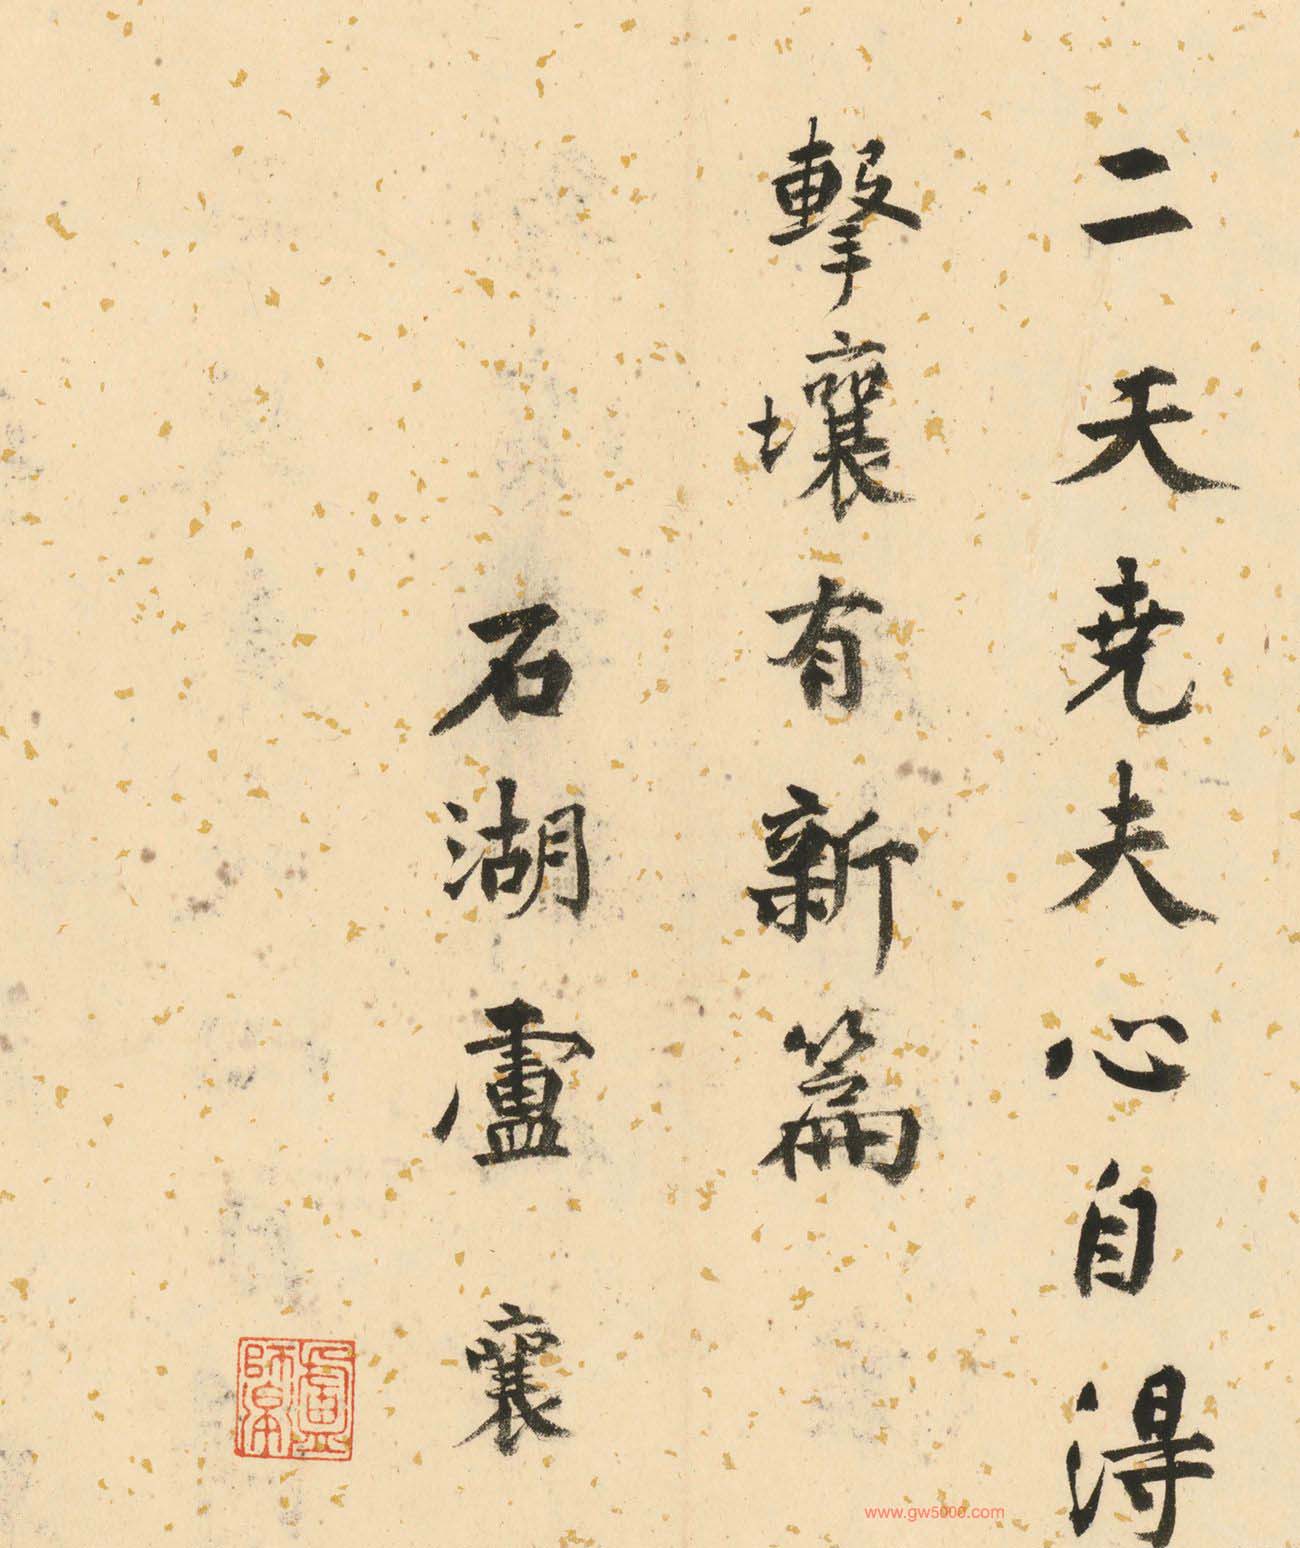 二天堯夫心自得
擊壤有新篇
石湖盧襄
盧師
www.gw5000.com